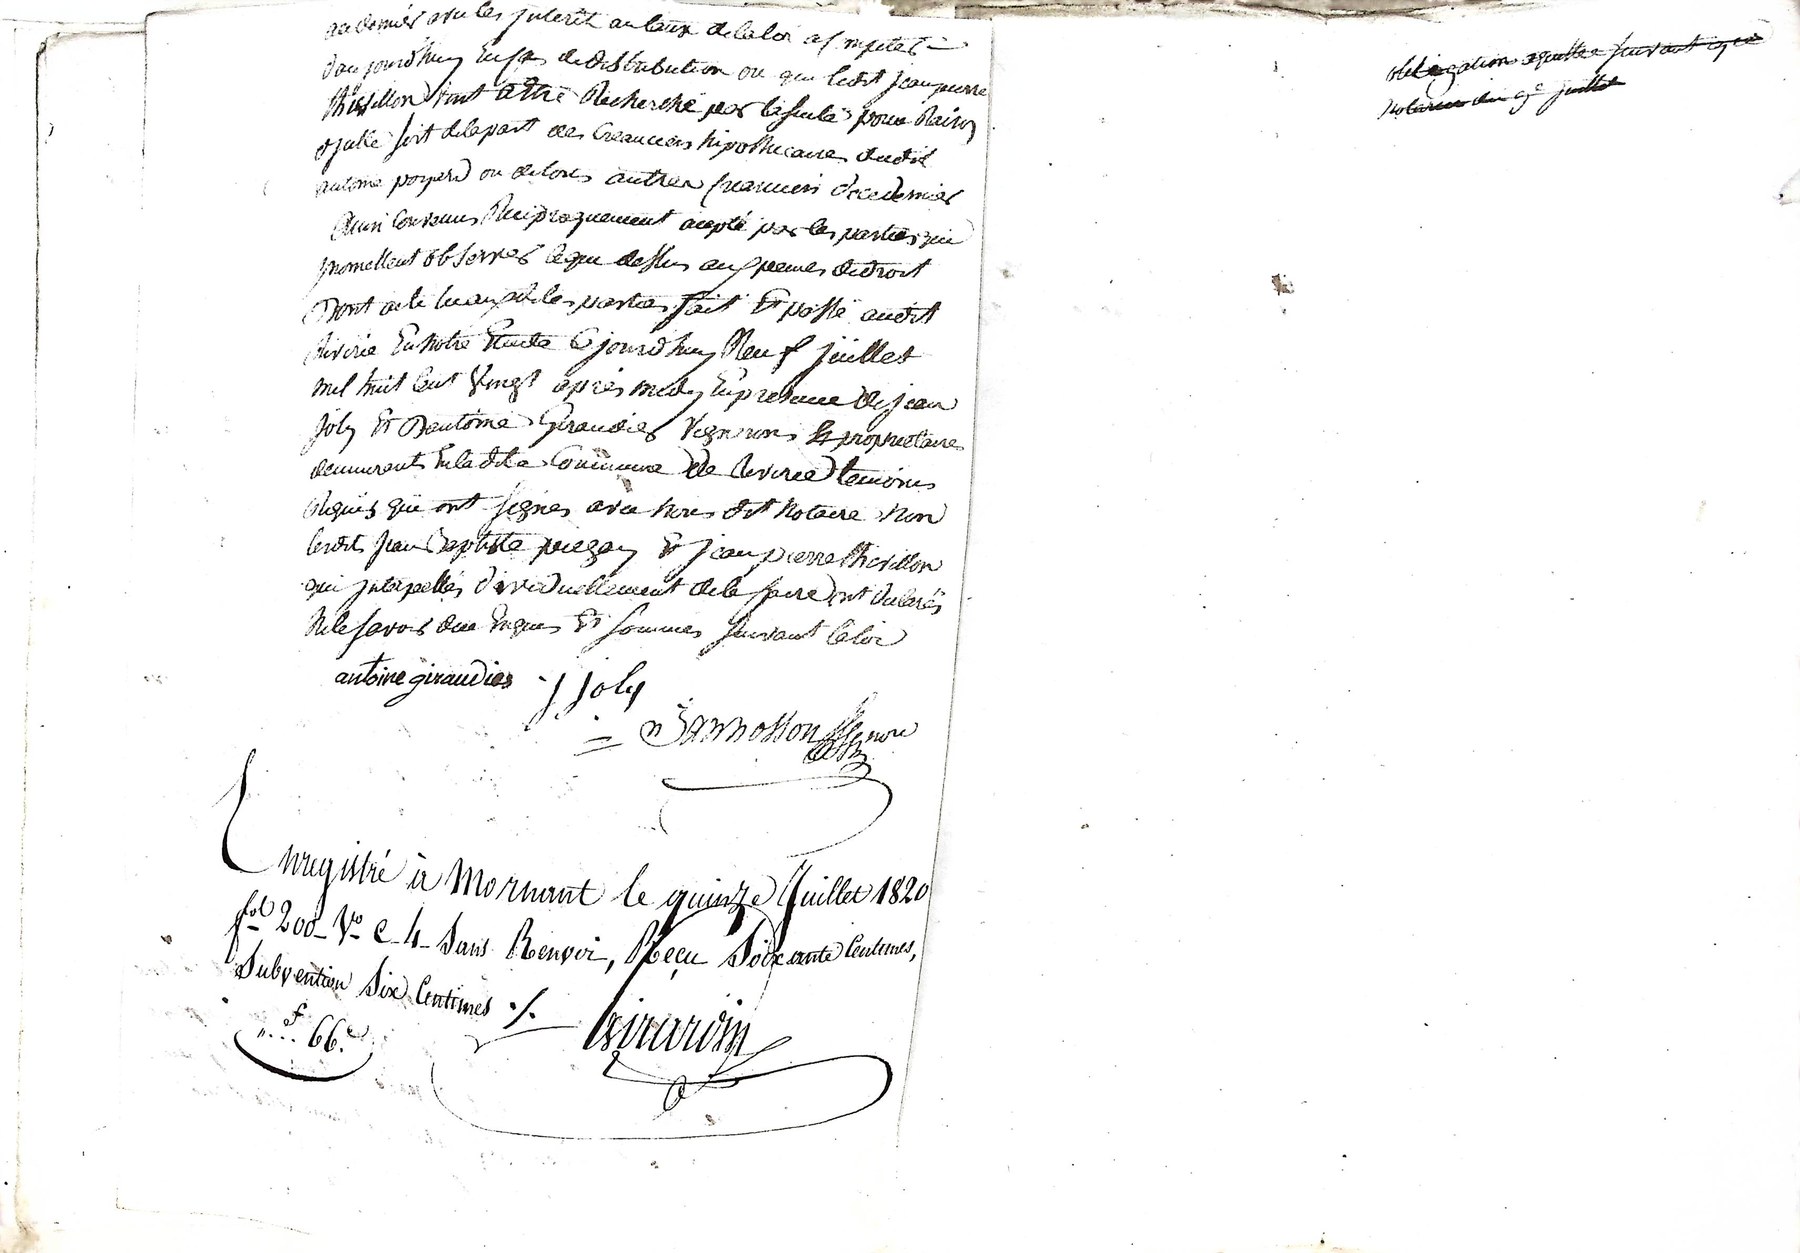 au dernier avec les interêt au taux de la loi a compter
d'aujourdhuy En cas de distribution ou que ledit jean pierre
thivillon vint a être Recherché par la suite pour Raison
d'jcelle soit de la part des Creanciers hipothecaires dudit
antoine poyard ou de tous autres Creanciers de ce dernier
Ainsi Convenus Reciproquement accepté par les parties qui
promettent observer ce que dessus aux peines de droit
Dont acte lu aux dites parties fait Et passé audit
Riverie En notre Etude Ce jourdhuy Neuf juillet
mil huit Cent Vingt après midy En presence de jean
joly Et D'antoine Giraudier Vignerons & proprietaires
demeurants En la dite Commune de Riverie temoins
Requis qui ont signés avec nous dit Notaire Non
lesdits jean Baptiste & jean pierre thivillon
qui jnterpellés dividuellement de le faire ont declarés
Ne le savoir de ce Enquis Et sommes suivant la loi
antoine giraudier j joly
Enregistré à Mornant le quinze Juillet 1820
fol. 200 Vo C 4 Sans Renvoi, Reçu Soixante Centimes,
Subvention Six Centimes ./.
"... f 66 c
Girardin
obligation suivant
Notaire du 9e juillet